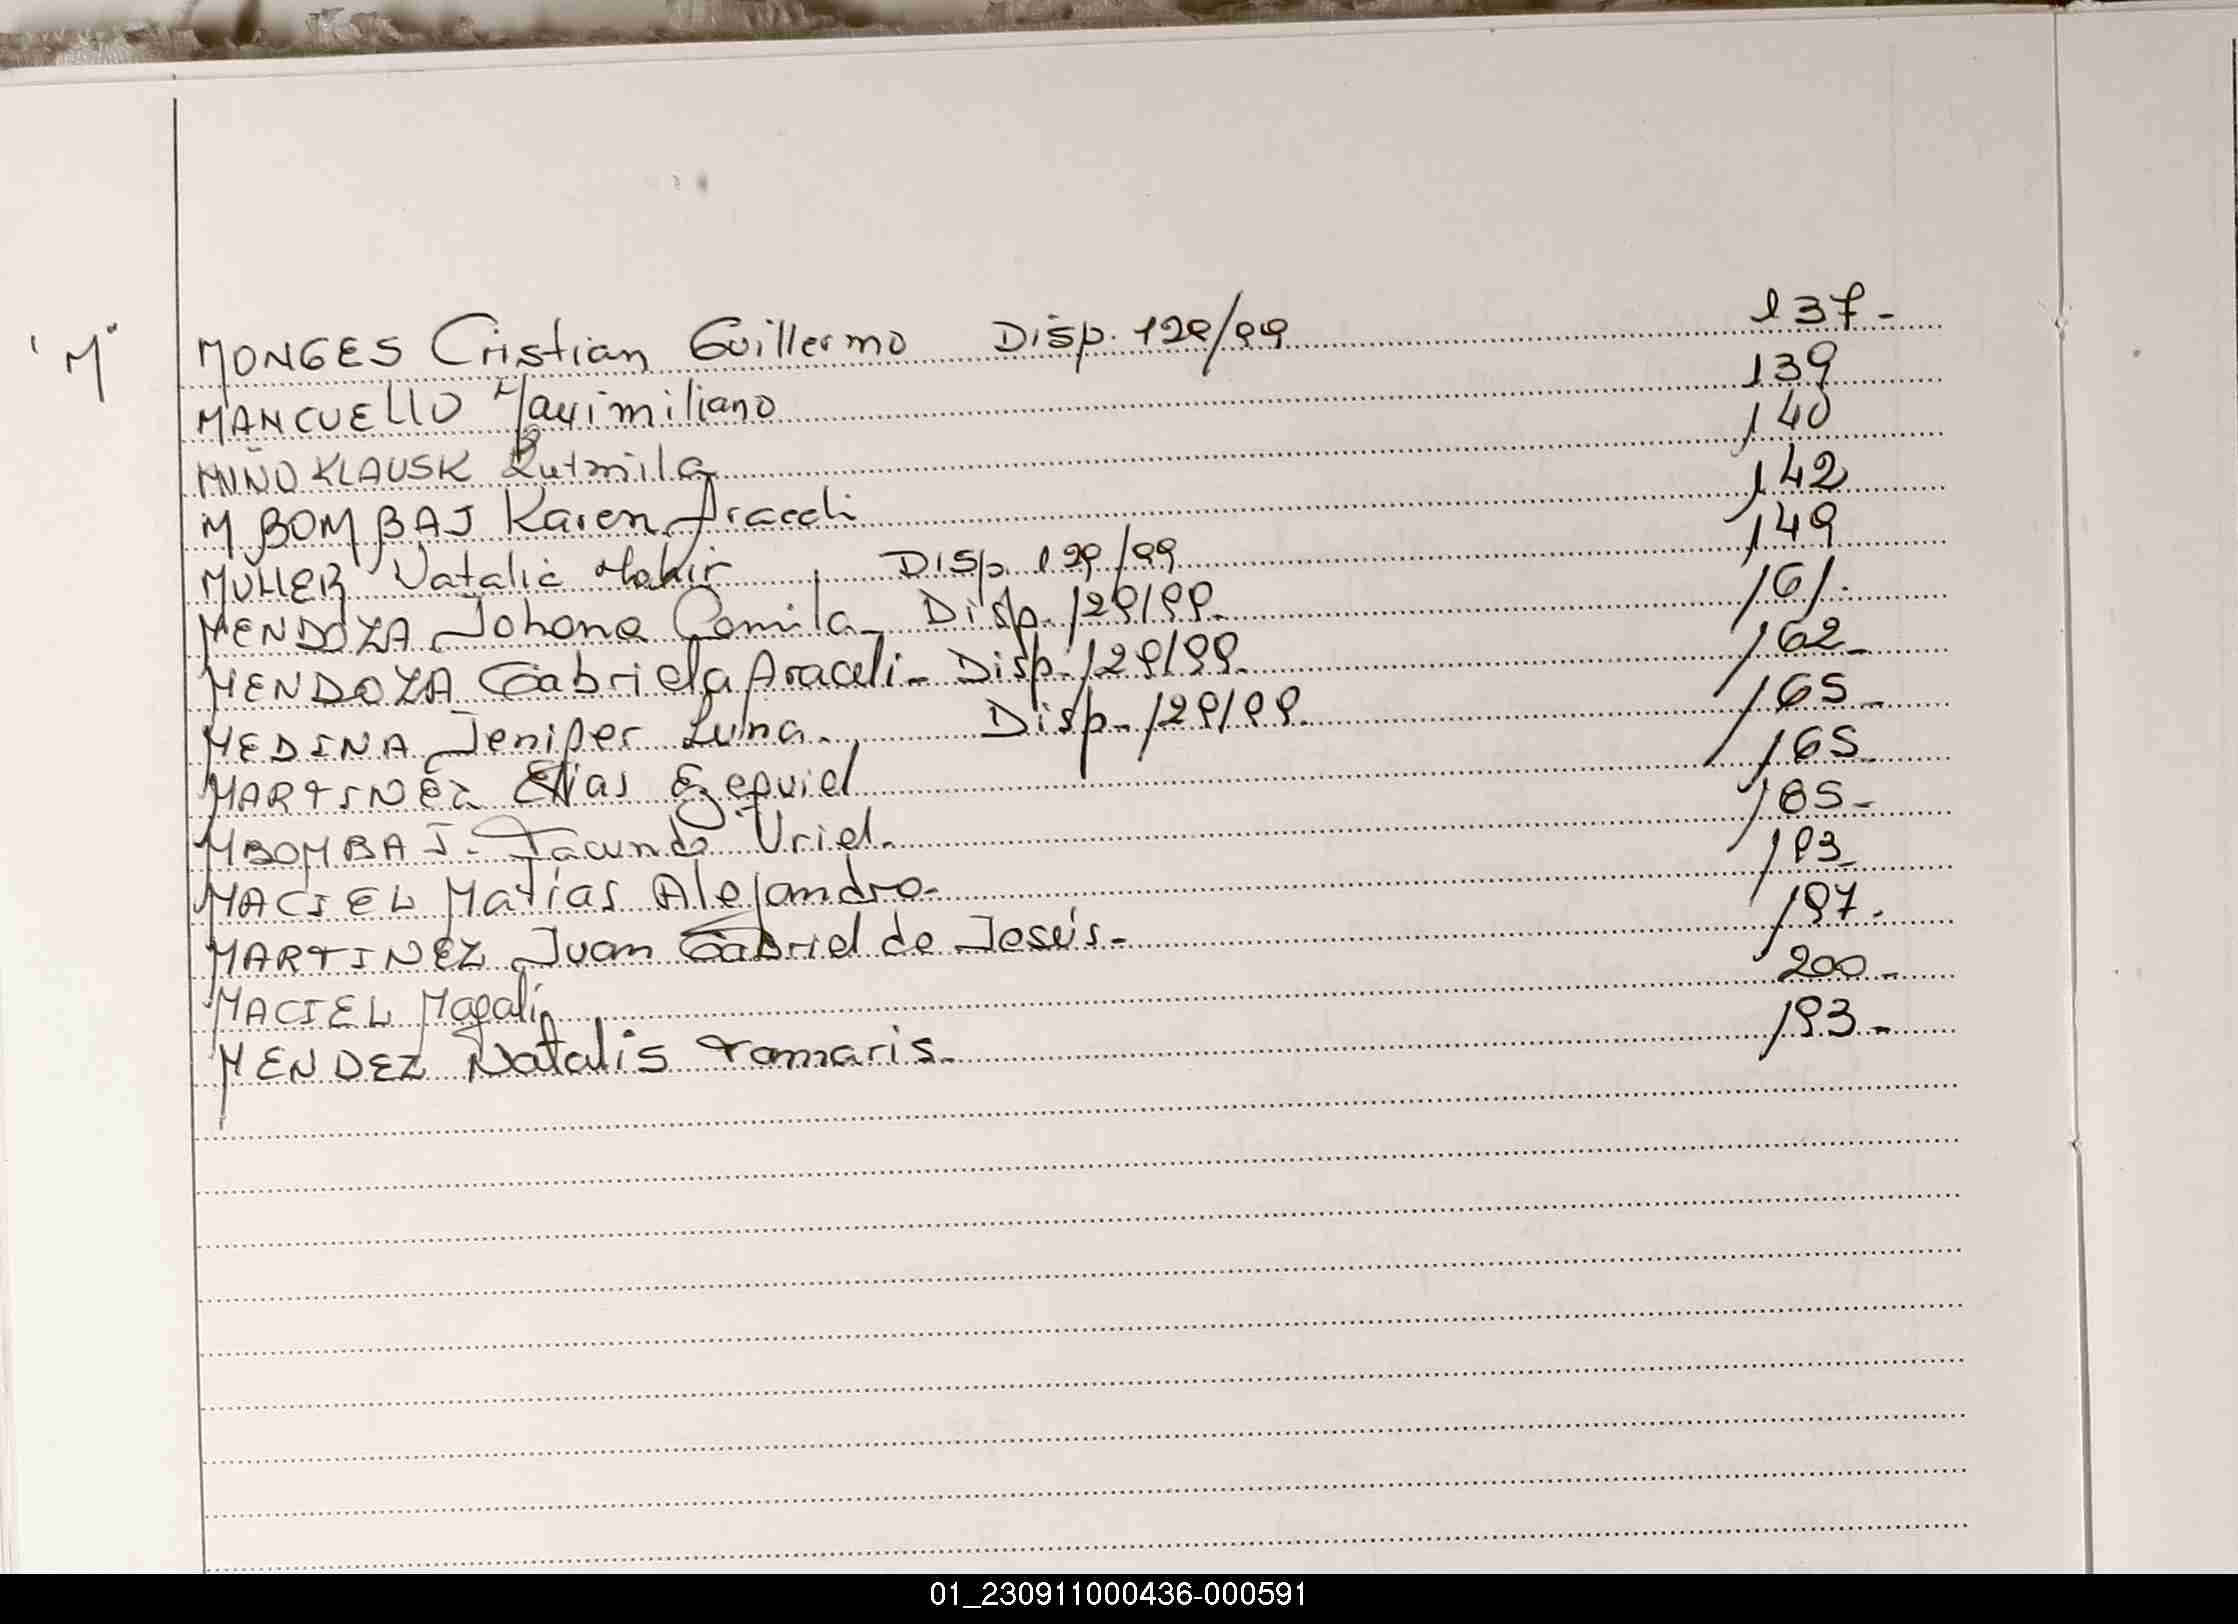 "M" MONGES Cristian Guillermo Disp. 129/99 137-
MANCUELLO Maximiliano 139
MIÑO KLAUSK Lutmila 140
MBOMBAJ Karen Araceli 142
MULLER Natalia Disp. 129/99 149
MENDOZA Johana Camila - Disp. 129/99. 161.
MENDOZA Gabriela Araceli - Disp. 129/99. 162-
MEDINA Jenifer Luna. Disp. 129/99. 165-
MARTINEZ Elias Ezequiel 165-
MBOMBAJ - Facundo Uriel. 185-
MACIEL Matías Alejandro- 193-
MARTINEZ Juan Gabriel de Jesús- 197-
MACIEL Magali 200-
MENDEZ Natalis Tamaris- 193-
01_230911000436-000591